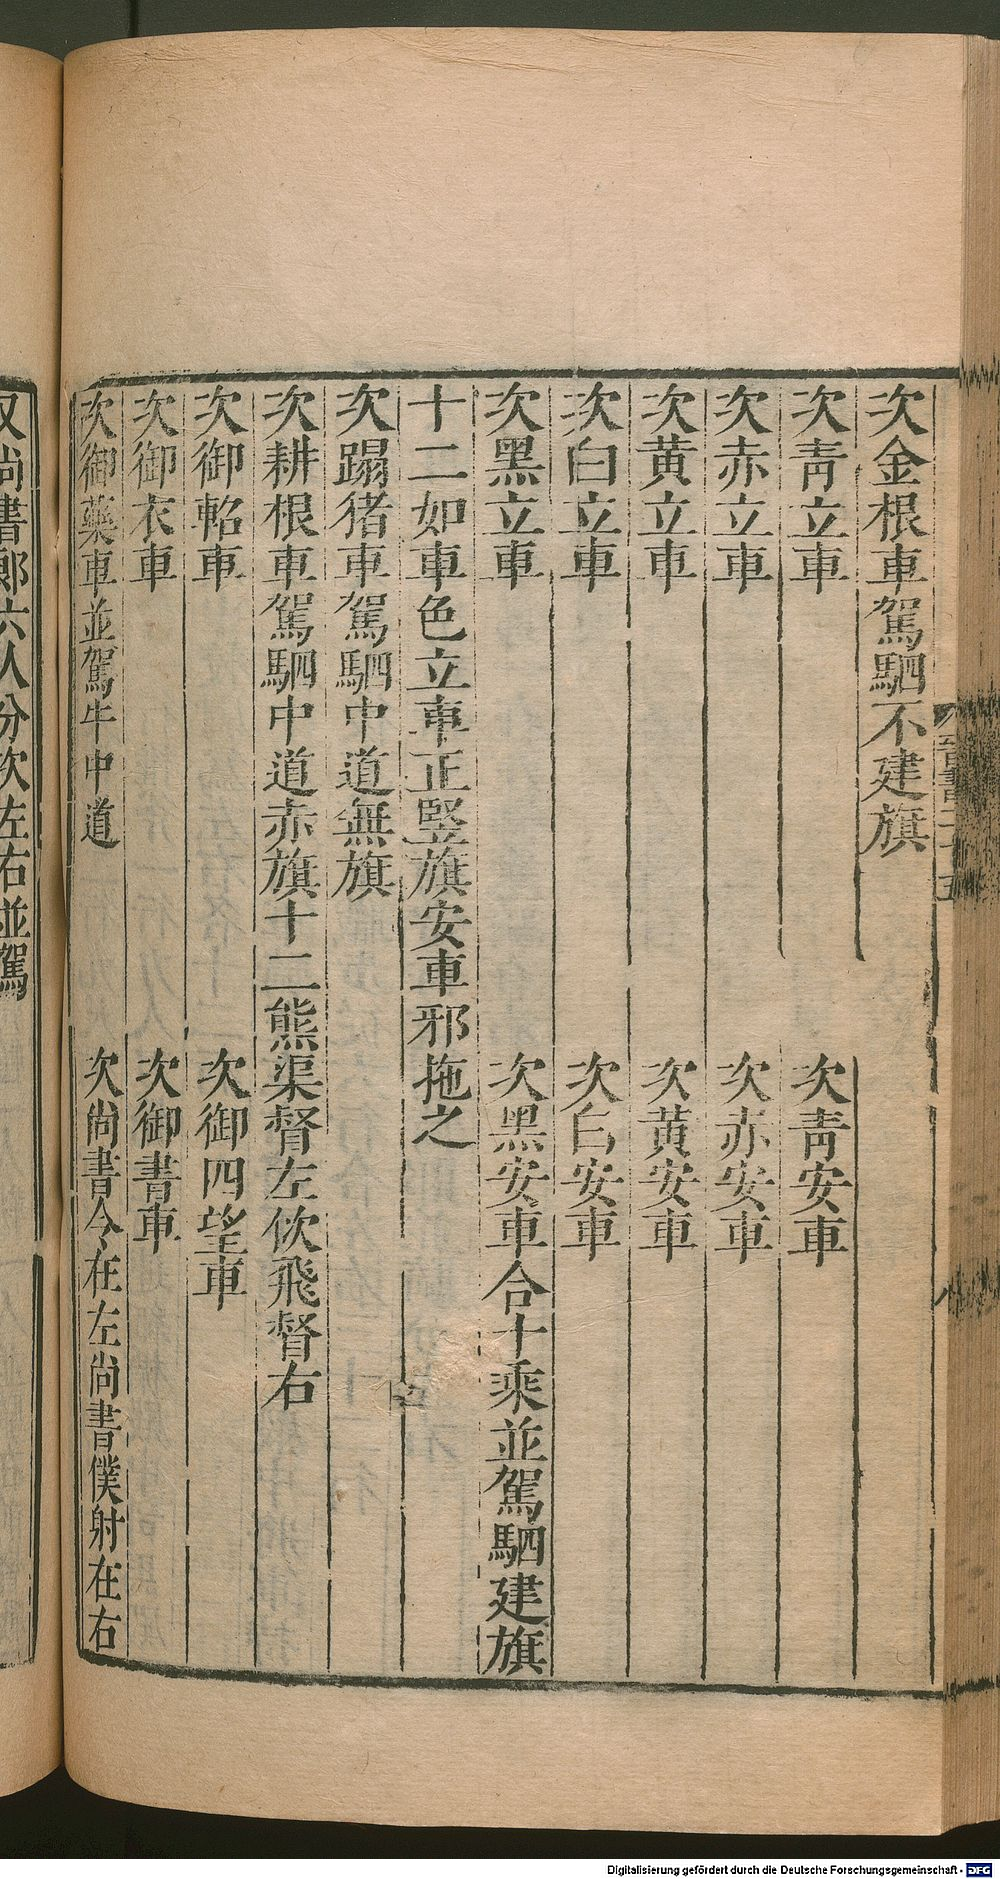 次金根車駕駟不建旗
次靑立車　次靑安車
次赤立車　次赤安車
次黃立車　次黃安車
次白立車　次白安車
次黑立車　次黑安車合十乘並駕駟建旗
十二如車色立車正竪旗安車邪拖之
次蹋猪車駕駟中道無旗
次耕根車駕駟中道赤旗十二熊渠督左佽飛督右
次御軺車　次御四望車
次御衣車　次御書車
次御藥車並駕牛中道　次尙書令在左尙書僕射在右
又尙書郞六人分次左右並駕
Digitalisierung gefördert durch die Deutsche Forschungsgemeinschaft - DFG